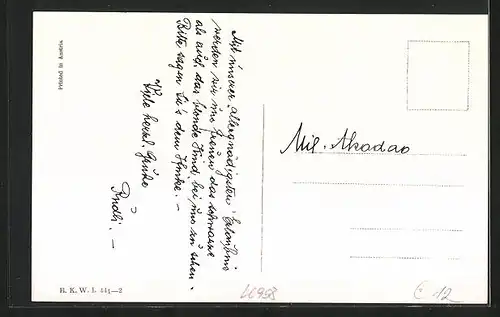 Printed in Austria
Mit unserer „Allergnädigsten" Erlaubnis
werden wir uns freuen das schwarze
als auch das blonde Kind bei uns zu sehen.
Bitte sagen Sie's dem -
Viele herzl. Grüße
Rudi. -
Mil. Akadao
B. K. W. I. 441—2
€ 12